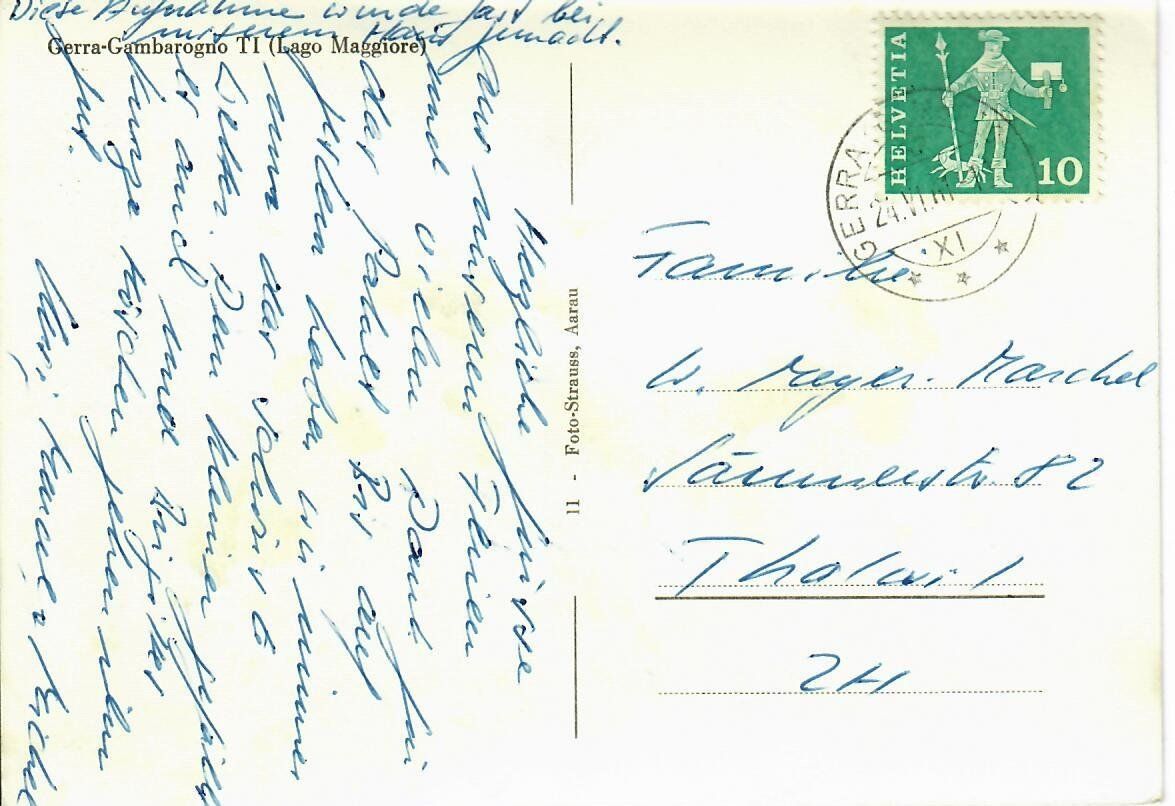 Diese Aufnahme wurde fast bei
unserem Haus gemacht.
Gerra-Gambarogno TI (Lago Maggiore)
Herzliche Grüsse
aus unseren Ferien
und vielen Dank für
das Packet. Bis auf
gestern haben wir immer
nur das schönste
Wetter. Dem kleinen gefällt
es auch und
gehen
gut.
11 - Foto-Strauss, Aarau
HELVETIA
10
GERRA
24.VI.
XI
Familie
W. Meyer-Marchel
82
Thalwil
ZH